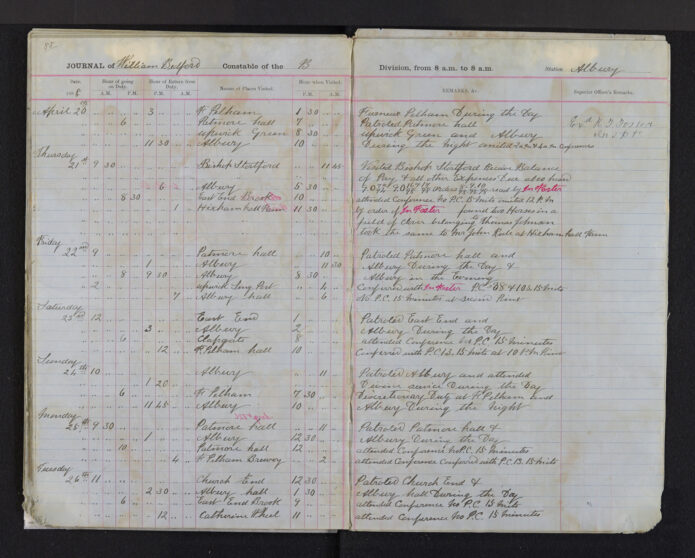 88
JOURNAL of William Belford Constable of the B
Date. Hour of going on Duty. Hour of Return from Duty. Names of Places Visited. Hour when Visited.
A.M. P.M. A.M. P.M. A.M. P.M.
April 20th 3 F Pelham 1 30
6 Patmore hall 7
upwick Green 8 30
11 30 Albury 10
Thursday
21st 9 30 Bishop Stortford 11 45
6 Albury 6 30
8 30 East End Brook 10
1 Hixham hall Farm 11 30
Friday
22nd 9 Patmore hall 10
1 Albury 11 30
8 9 30 Albury 8 30
2 upwick Sing Post 4
7 Albury hall 6
Saturday
23rd 12 East End 1
3 Albury 2
6 Clapgate 8
12 F. Pelham hall 10
Sunday
24th 10 Albury 11
1 20
6 F Pelham 7 30
11 45 Albury 10
Monday
25th 9 30 Patmore hall 11
1 Albury 12 30
10 Patmore hall 12
4 F Pelham Brewey 2
Tuesday
26th 11 Church End 12 30
2 30 Albury hall 1 30
6 East End Brook 9
12 Catherine Wheel 11
Division, from 8 a.m. to 8 a.m. Station Albury
REMARKS, &c. Superior Officer's Remarks.
Furneux Pelham During the Day
Patroled Patmore hall
upwick Green and Albury
During the night
Visited Bishop Stortford Balance
of Pay & all other Expenses
Foster
attended Conference No P.C. 15 Mints
by order of Foster found two Horses in a
field of Clover belonging Thomas Johnson
took the same to Mr John Rule at Hixham hall Farm
Patroled Patmore hall and
Albury During the Day &
Albury in the Evening
Conferred with Foster P.C. 15 Mints
No P.C. 15 minutes at
Patroled East End and
Albury During the Day
attended Conference No P.C. 15 minutes
Conferred with P.C. 15 Mints at 10 P.M.
Patroled Albury and attended
Divine service During the Day
Discretionary Duty at F. Pelham and
Albury During the night
Patroled Patmore hall &
Albury During the Day
attended Conference No P.C. 15 minutes
attended Conference Conferred with P.C. 15 Mints
Patroled Church End &
Albury hall During the Day
attended Conference No P.C. 15 Mints
attended Conference No P.C. 15 minutes